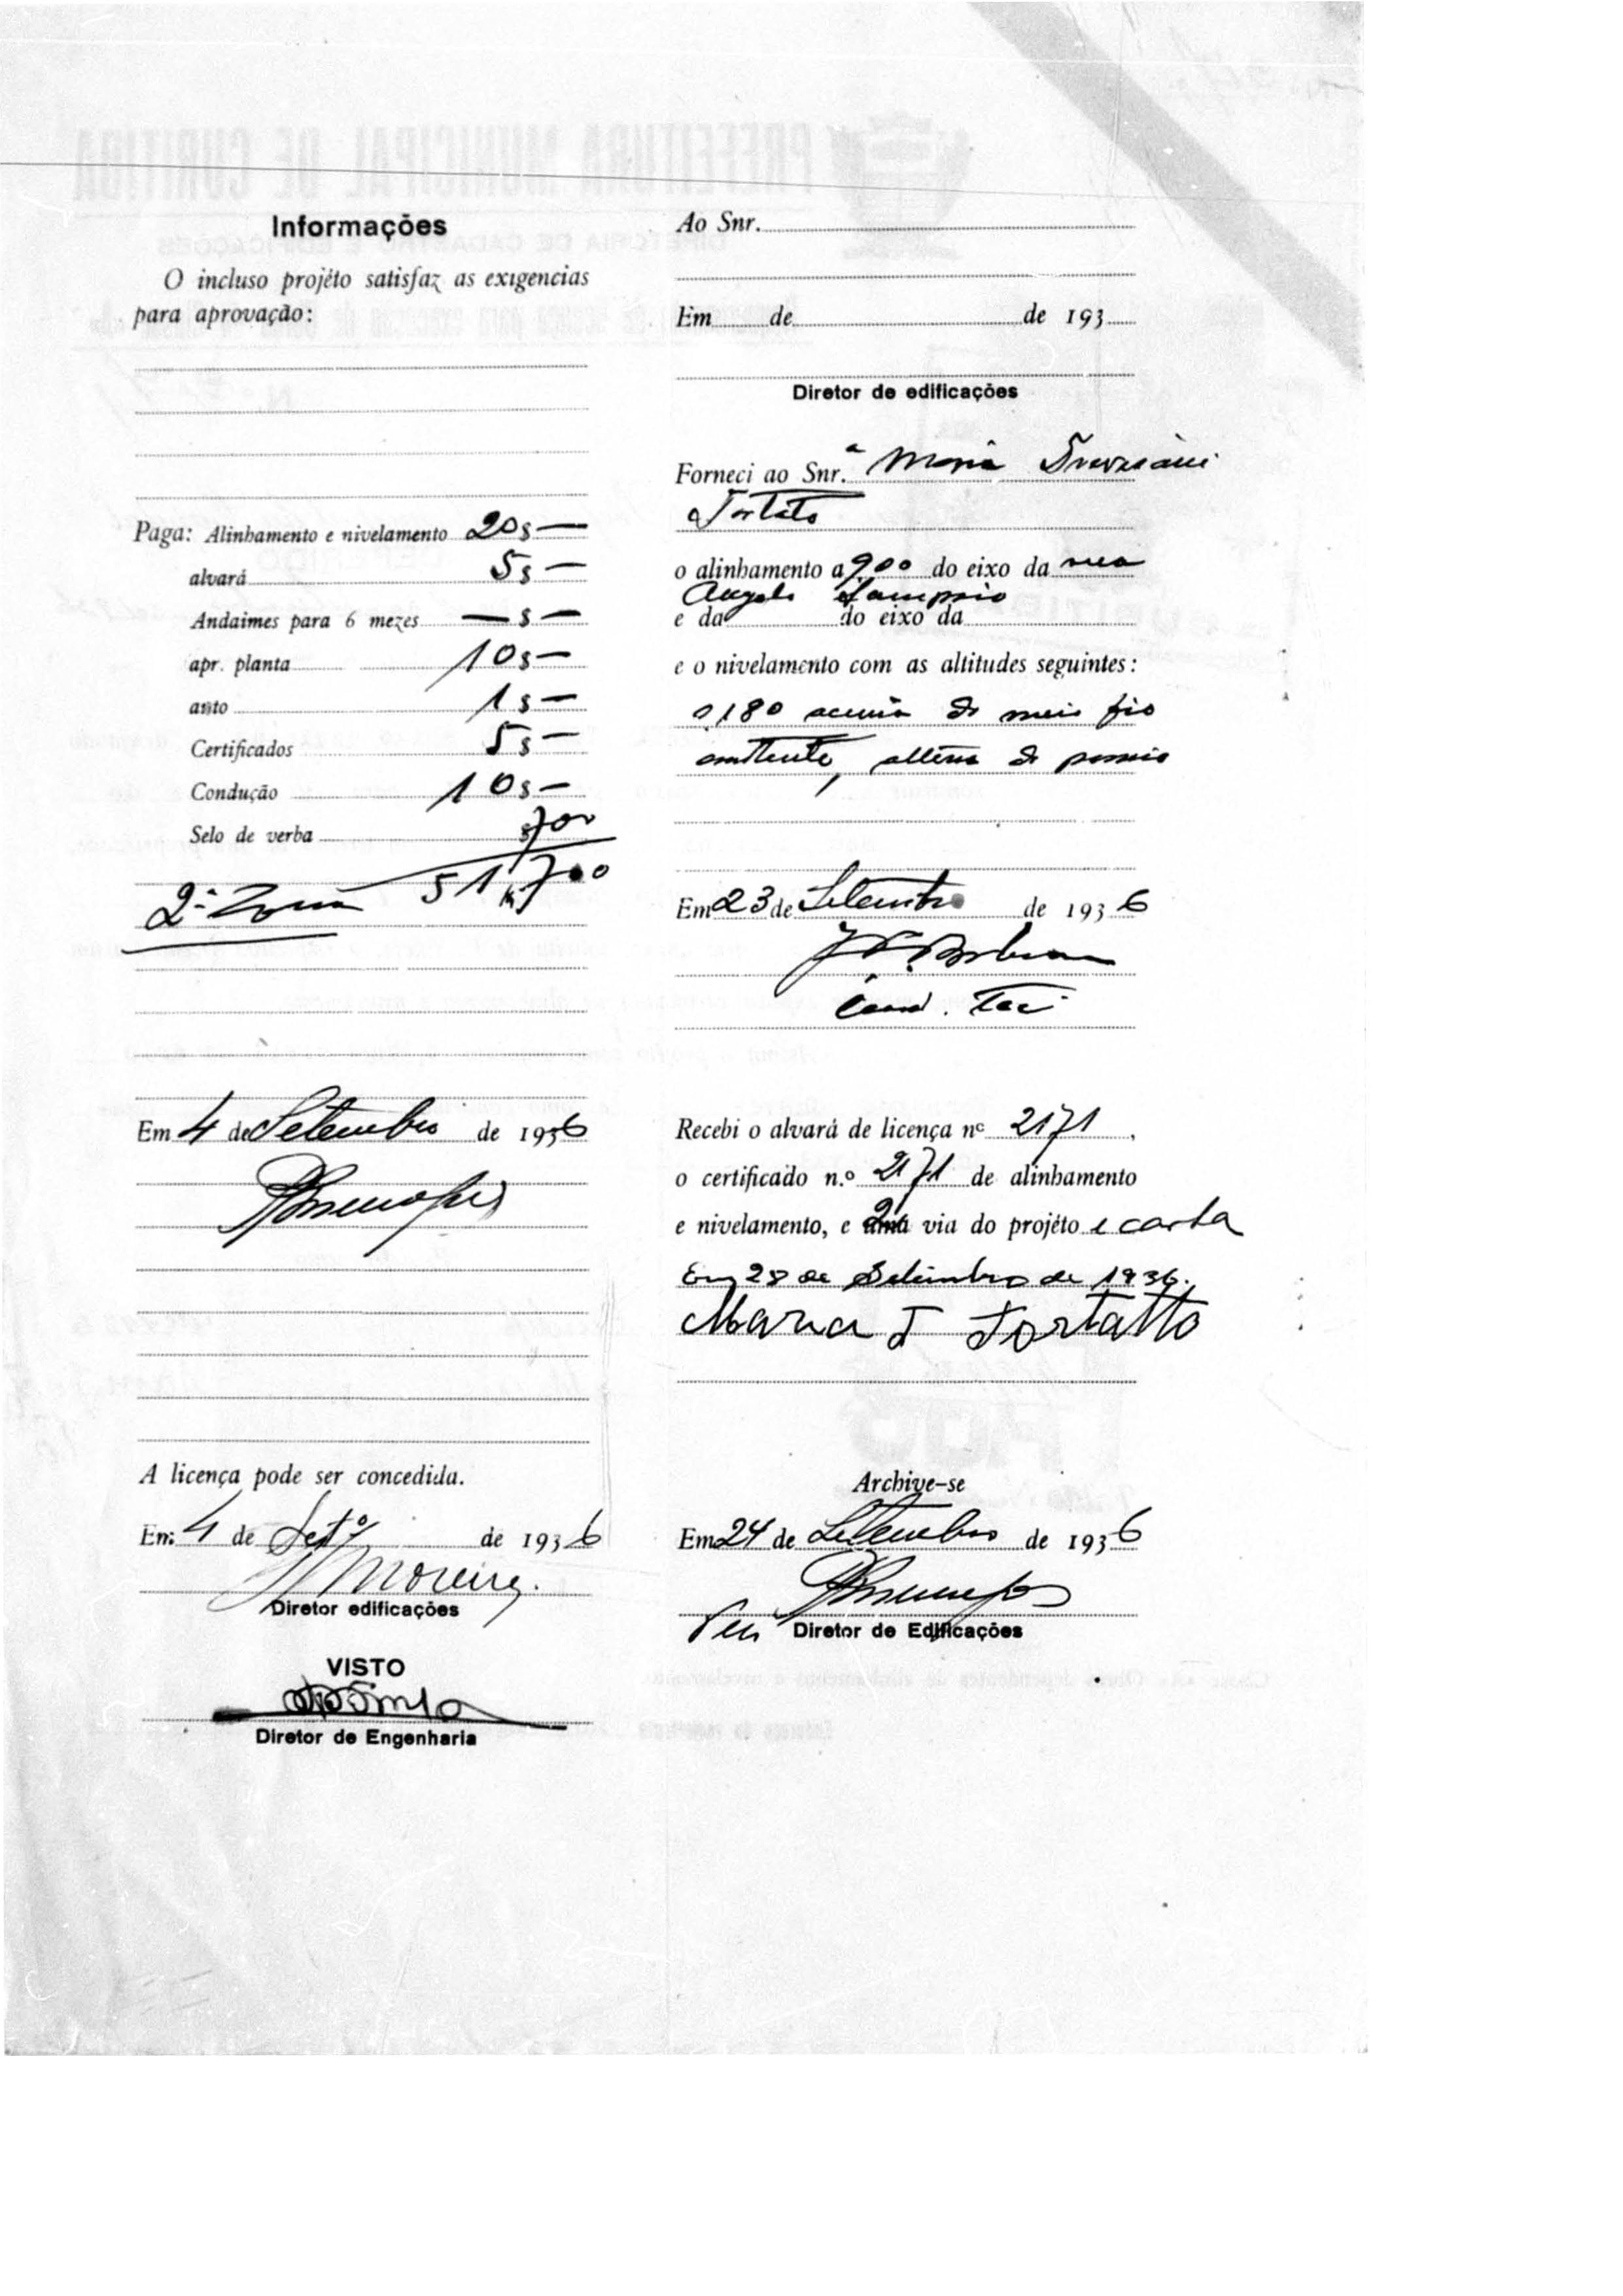 Informações
O incluso projéto satisfaz as exigencias
para aprovação:
Paga: Alinhamento e nivelamento 20$—
alvará 5$—
Andaimes para 6 mezes —$—
apr. planta 10$—
auto 1$—
Certificados 5$—
Condução 10$—
Selo de verba $700
51$700
2ª Zona
Em 4 de Setembro de 1936
A licença pode ser concedida.
Em 4 de Setº de 1936
Moreira.
Diretor edificações
VISTO
Diretor de Engenharia
Ao Snr.
Em de de 193
Diretor de edificações
Forneci ao Snr.ª Maria
Tortato
o alinhamento a 9.00 do eixo da rua
Angelo Sampaio
e da do eixo da
e o nivelamento com as altitudes seguintes:
0,180 acima do meio fio
, altura do passeio
Em 23 de Setembro de 1936
Cond. Tec.
Recebi o alvará de licença nº 2171,
o certificado n.º 2171 de alinhamento
e nivelamento, e 2ª via do projéto e carta
Em 28 de Setembro de 1936.
Maria T Tortatto
Archive-se
Em 24 de Setembro de 1936
Diretor de Edificações
PREFEITURA MUNICIPAL DE CURITIBA
DIRETORIA DE CADASTRO E EDIFICAÇÕES